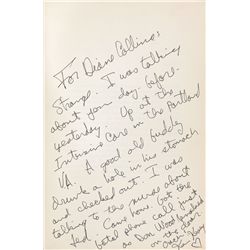 For Diane Collins:
Strange. I was talking
about you day before
yesterday. Up at the Portland
Intensive Care in the
VA. A good old buddy
drunk a hole in his stomach
and checked out. I was
talking to the nurses about
Came home. Got the
phone call just
as Don Wood
on the